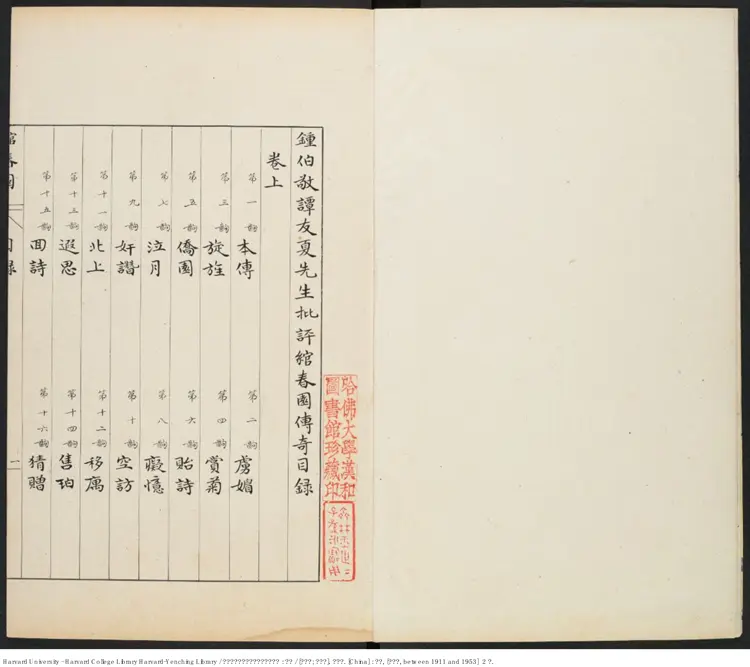 鍾伯敬譚友夏先生批評綰春園傳奇目錄
卷上
第一齣 本傳 第二齣 虜媚
第三齣 旋旌 第四齣 賞菊
第五齣 僑園 第六齣 貽詩
第七齣 泣月 第八齣 癡憶
第九齣 奸譖 第十齣 空訪
第十一齣 北上 第十二齣 移寓
第十三齣 遐思 第十四齣 售珀
第十五齣 回詩 第十六齣 猜贈
綰春園 目錄 一
哈佛大學漢和
圖書館珍藏印
Harvard University - Harvard College Library Harvard-Yenching Library / ??????????????? : ?? / [??? ; ???]. ???. [China] : ??, [???, between 1911 and 1953] 2 ?.